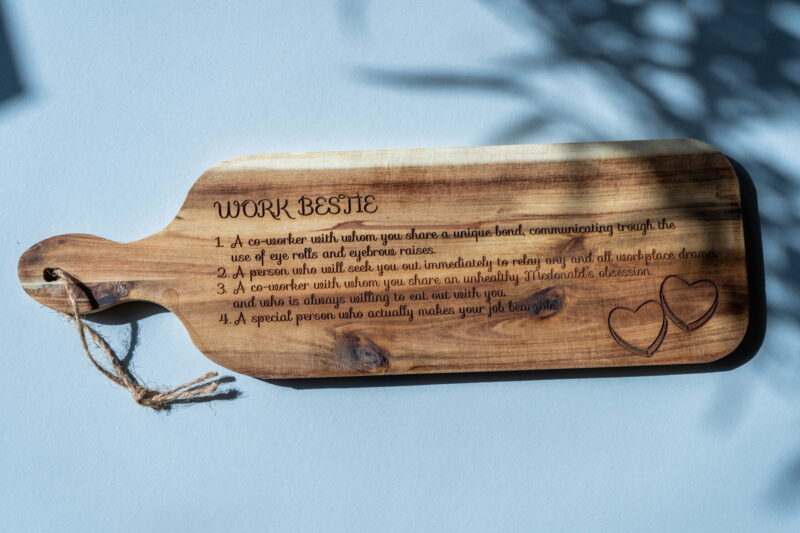 WORK BESTIE
1. A co-worker with whom you share a unique bond, communicating trough the
use of eye rolls and eyebrow raises.
2. A person who will seek you out immediately to relay any and all workplace drama.
3. A co-worker with whom you share an unhealthy Mcdonald's obsession
and who is always willing to eat out with you.
4. A special person who actually makes your job bearable.